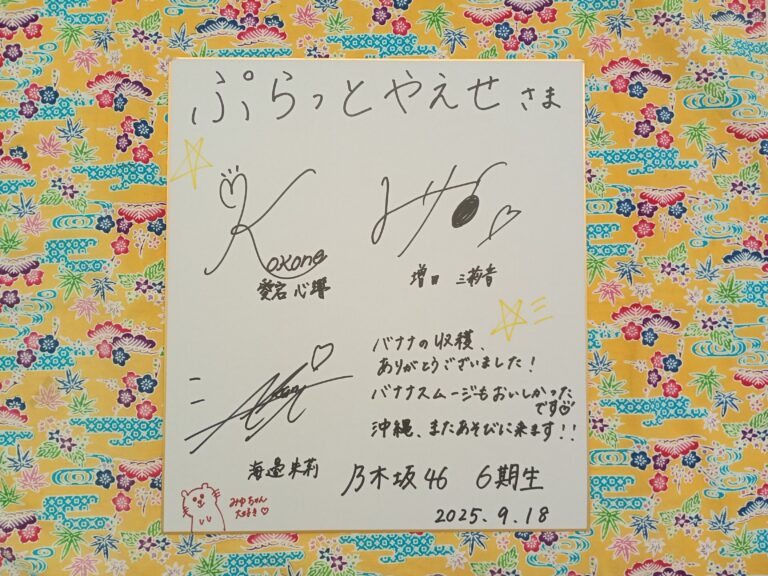 ぷらっとやえせ さま
Kokone
愛宕 心響
増田 三莉音
バナナの収穫、
ありがとうございました！
バナナスムージもおいしかった
です
沖縄、またあそびに来ます！！
海邉 朱莉
みゆちゃん
大好き♡
乃木坂46 6期生
2025.9.18